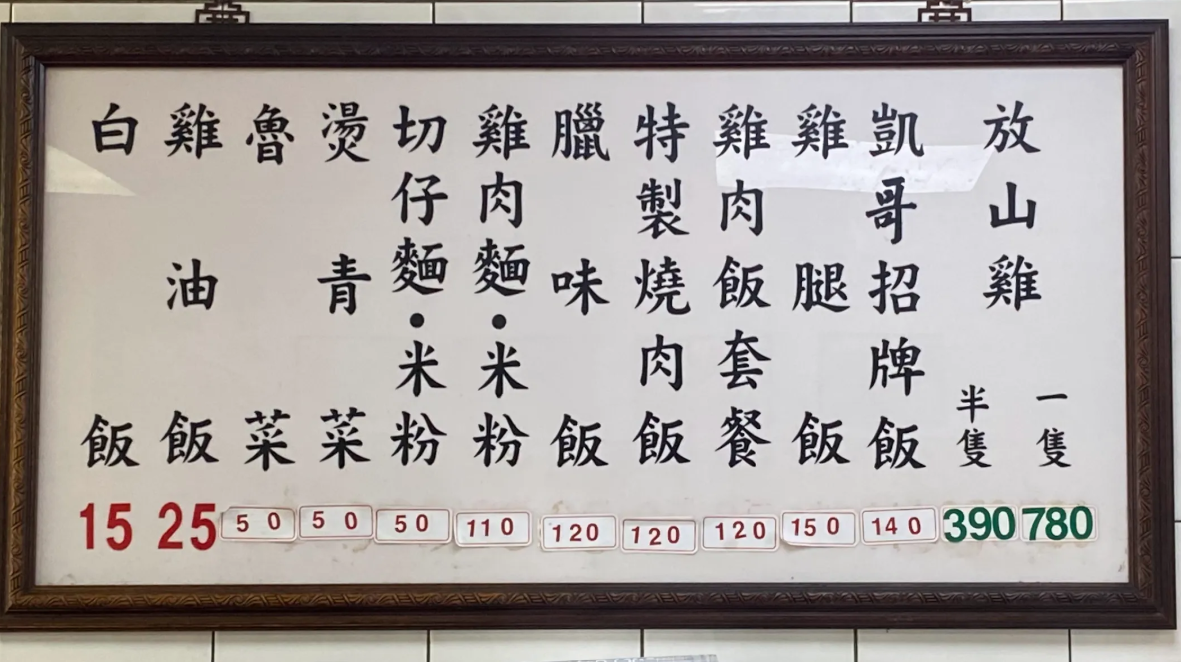 放山雞
一隻
780
半隻
390
凱哥招牌飯
140
雞腿飯
150
雞肉飯套餐
120
特製燒肉飯
120
臘味飯
120
雞肉麵•米粉
110
切仔麵•米粉
50
燙青菜
50
魯菜
50
雞油飯
25
白飯
15